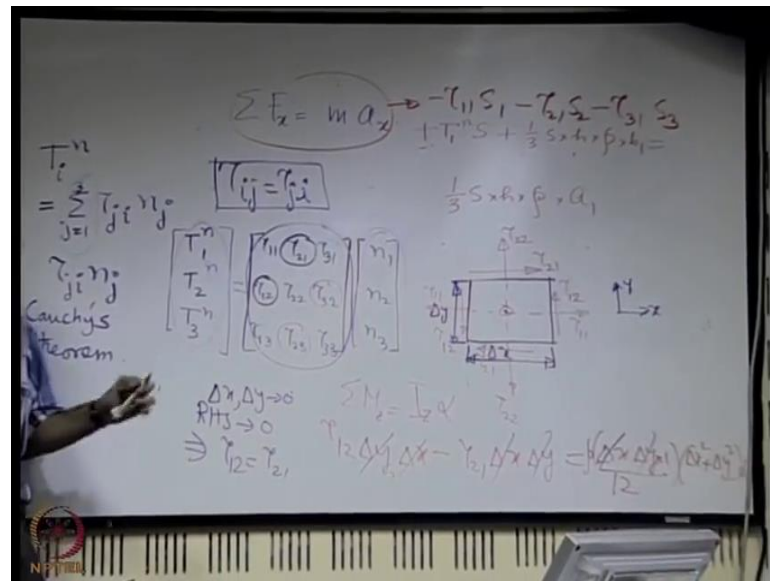 ΣFx = m ax → -τ11 S1 - τ21 S2 - τ31 S3
+ T1^n S + 1/3 s×h×ρ×b1 =
1/3 s×h×ρ×a1
Ti^n
= Σ j=1 τji nj
τji nj
Cauchy's
theorem
τij = τji
[T1^n] = [τ11 τ21 τ31] [n1]
[T2^n] [τ12 τ22 τ32] [n2]
[T3^n] [τ13 τ23 τ33] [n3]
τ22
τ21
τ11 τ12
Δy
τ12 τ11
Δx
τ22
y
x
Δx, Δy→0
RHS→0
⇒ τ12 = τ21
ΣMz = Iz α
τ12 Δy Δx - τ21 Δx Δy = (Δx Δy×1)/12 (Δx²+Δy²)
NPTEL